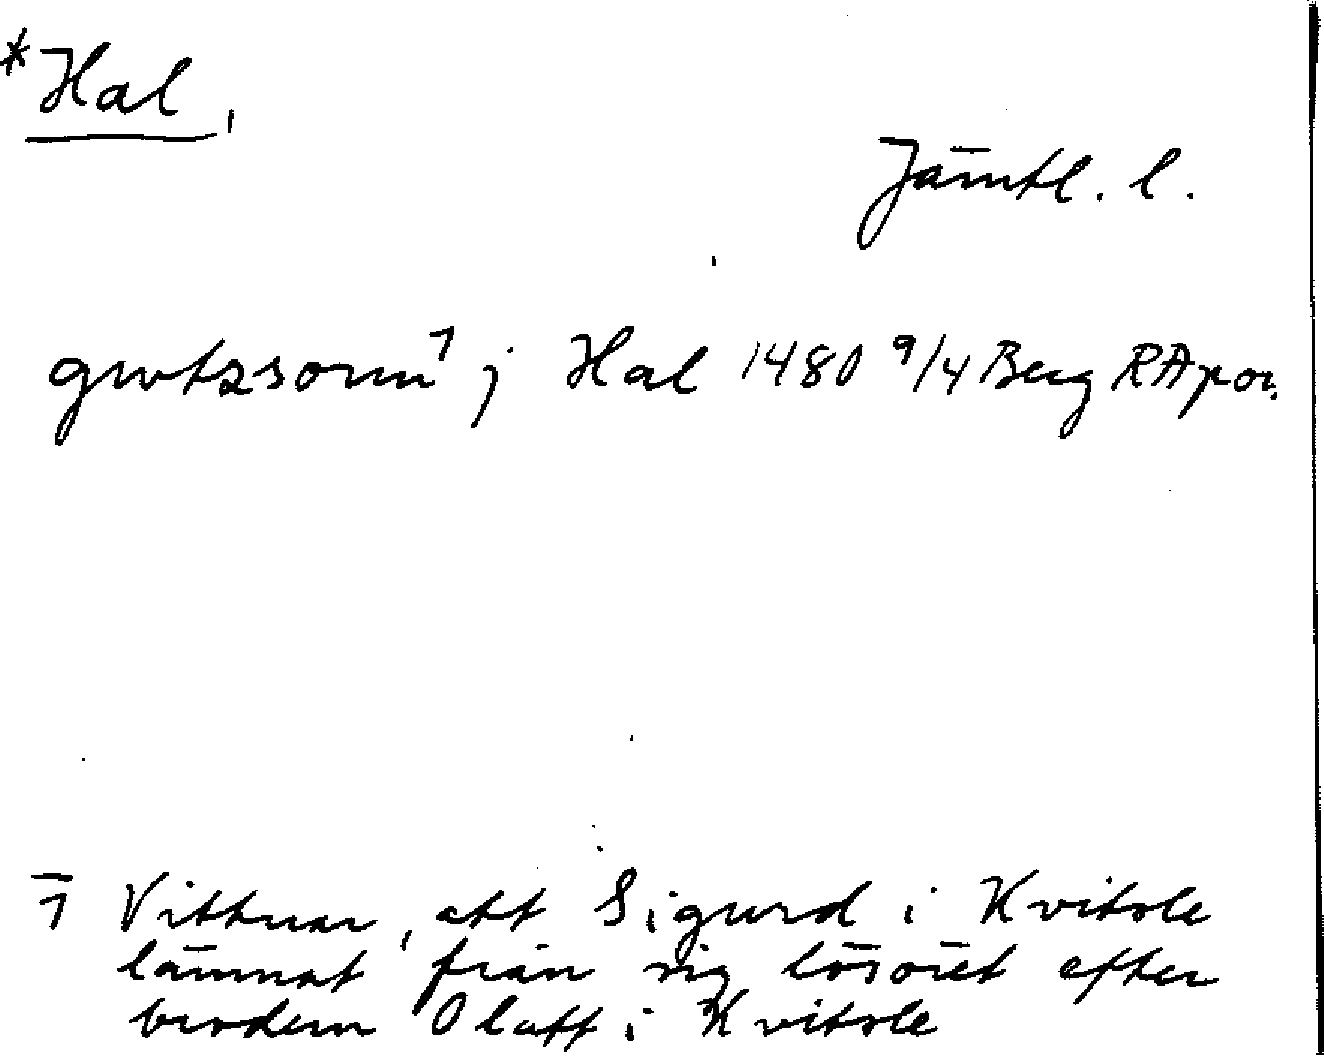 *Hal,
Jämtl. l.
grwtzsonn 1 j Hal 1480 9/4 Berg RApor.
1 Vittnar, att Sigurd i Kvitsle
lämnat från sig lösöret efter
brodern Olaff i Kvitsle